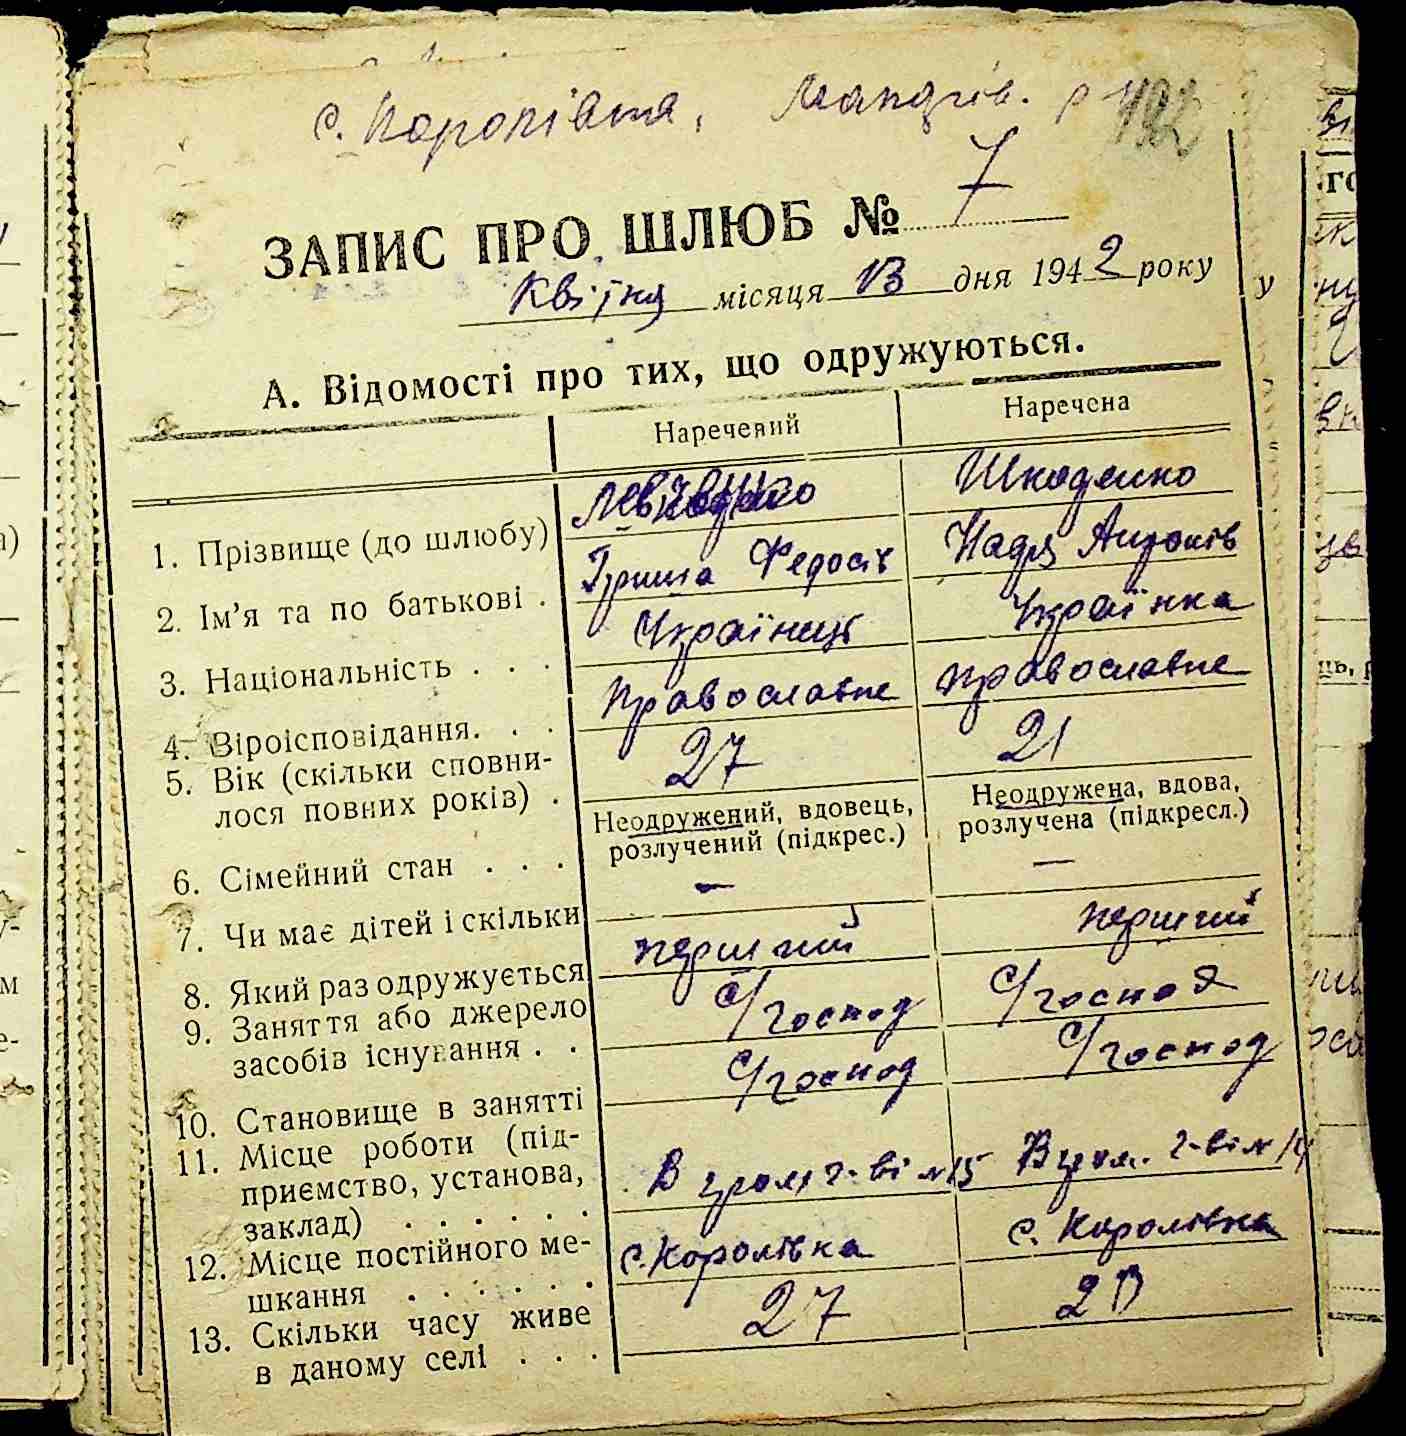 с. Королівка, р-н 192
ЗАПИС ПРО ШЛЮБ № 7
Квітня місяця 13 дня 1942 року
А. Відомості про тих, що одружуються.
Наречений Наречена
1. Прізвище (до шлюбу) Шкоденко
2. Ім'я та по батькові . Федосів Надя
3. Національність . . . Українець Українка
4. Віроісповідання. . . православне православне
5. Вік (скільки сповни-
лося повних років) . 27 21
6. Сімейний стан . . . Неодружений, вдовець, Неодружена, вдова,
розлучений (підкрес.) розлучена (підкресл.)
7. Чи має дітей і скільки — —
8. Який раз одружується перший перший
9. Заняття або джерело
засобів існування . . с/господ с/господ
10. Становище в занятті с/господ с/господ
11. Місце роботи (під-
приємство, установа,
заклад) . . . . . . В гром г-ві №15 В гром. г-ві №
12. Місце постійного ме-
шкання . . . . . . с. Королівка с. Королівка
13. Скільки часу живе
в даному селі . . . 27